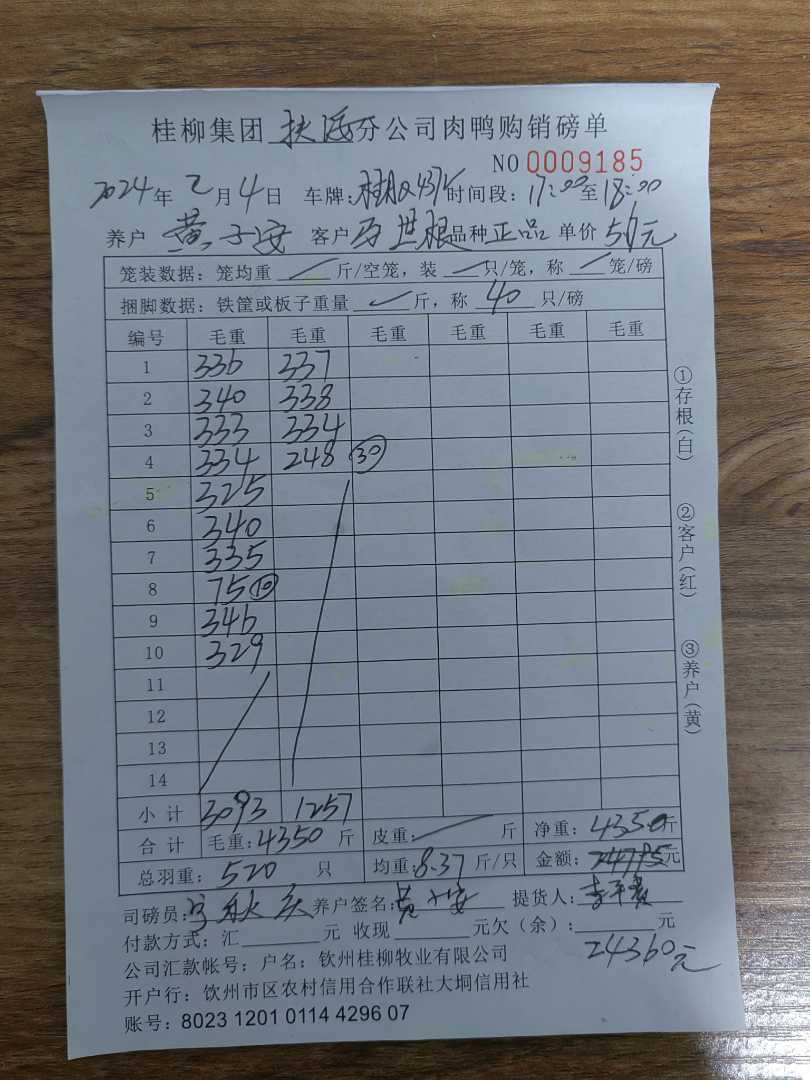 桂柳集团 扶 分公司肉鸭购销磅单
NO 0009185
2024年 2月 4日 车牌: 时间段: 17:00至18:00
养户 黄子安 客户 世根 品种 正品 单价 元
笼装数据: 笼均重 斤/空笼, 装 只/笼, 称 笼/磅
捆脚数据: 铁筐或板子重量 斤, 称 40 只/磅
编号 毛重 毛重 毛重 毛重 毛重 毛重
1 336 337
2 340 338
3 333 334
4 334 248 30
5 325
6 340
7 335
8 75 10
9 346
10 329
11
12
13
14
小计 3093 1257
合计 毛重: 4350 斤 皮重: 斤 净重: 4350斤
总羽重: 520 只 均重: 8.37 斤/只 金额: 元
司磅员: 秋 养户签名: 黄子安 提货人: 李
付款方式: 汇 元 收现 元欠(余): 元
24360元
公司汇款帐号: 户名: 钦州桂柳牧业有限公司
开户行: 钦州市区农村信用合作联社大垌信用社
账号: 8023 1201 0114 4296 07
①存根(白)
②客户(红)
③养户(黄)